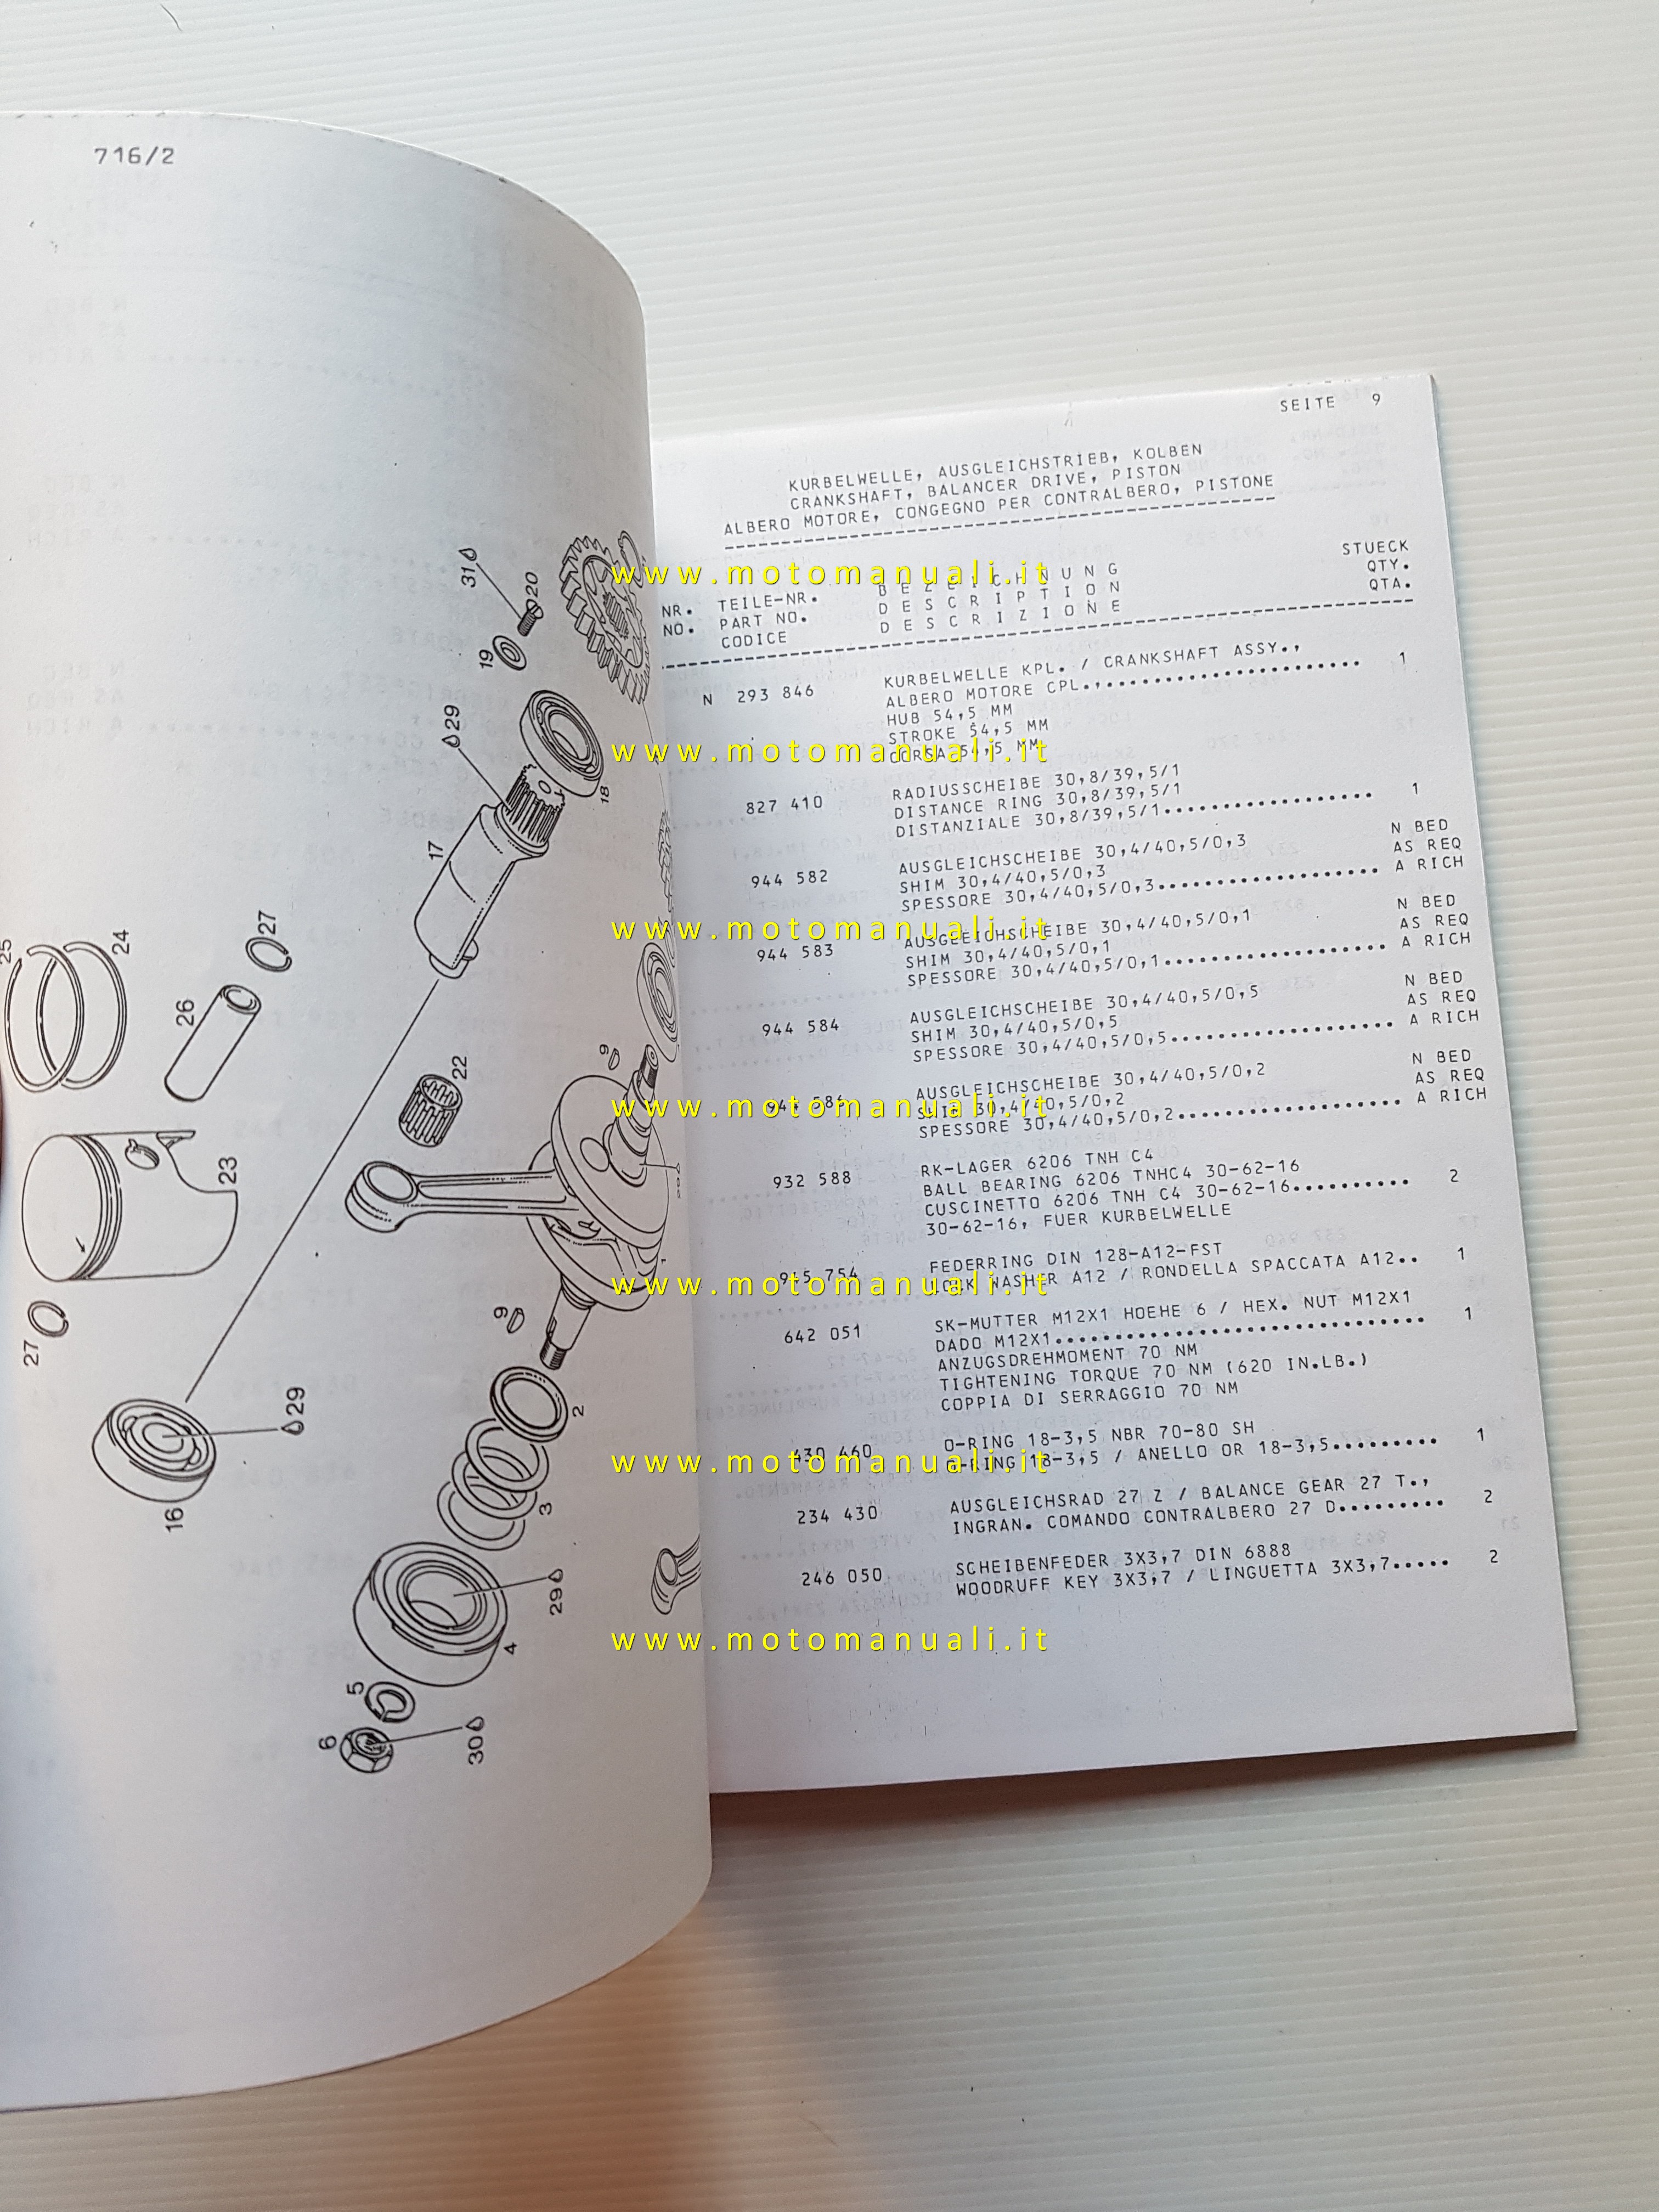 716/2
31
20
19
29
18
17
25
24
27
26
22
9
23
27
9
29
2
16
3
29
4
5
6
30
SEITE 9
KURBELWELLE, AUSGLEICHSTRIEB, KOLBEN
CRANKSHAFT, BALANCER DRIVE, PISTON
ALBERO MOTORE, CONGEGNO PER CONTRALBERO, PISTONE
NR. TEILE-NR. B E Z E I C H N U N G STUECK
NO. PART NO. D E S C R I P T I O N QTY.
CODICE D E S C R I Z I O N E QTA.
N 293 846 KURBELWELLE KPL. / CRANKSHAFT ASSY.,
ALBERO MOTORE CPL.,...................... 1
HUB 54,5 MM
STROKE 54,5 MM
CORSA 54,5 MM
827 410 RADIUSSCHEIBE 30,8/39,5/1
DISTANCE RING 30,8/39,5/1
DISTANZIALE 30,8/39,5/1.................. 1
944 582 AUSGLEICHSCHEIBE 30,4/40,5/0,3 N BED
SHIM 30,4/40,5/0,3 AS REQ
SPESSORE 30,4/40,5/0,3................... A RICH
944 583 AUSGLEICHSCHEIBE 30,4/40,5/0,1 N BED
SHIM 30,4/40,5/0,1 AS REQ
SPESSORE 30,4/40,5/0,1................... A RICH
944 584 AUSGLEICHSCHEIBE 30,4/40,5/0,5 N BED
SHIM 30,4/40,5/0,5 AS REQ
SPESSORE 30,4/40,5/0,5................... A RICH
AUSGLEICHSCHEIBE 30,4/40,5/0,2 N BED
SHIM 30,4/40,5/0,2 AS REQ
SPESSORE 30,4/40,5/0,2................... A RICH
932 588 RK-LAGER 6206 TNH C4
BALL BEARING 6206 TNHC4 30-62-16
CUSCINETTO 6206 TNH C4 30-62-16.......... 2
30-62-16, FUER KURBELWELLE
945 754 FEDERRING DIN 128-A12-FST
LOCK WASHER A12 / RONDELLA SPACCATA A12.. 1
642 051 SK-MUTTER M12X1 HOEHE 6 / HEX. NUT M12X1
DADO M12X1................................ 1
ANZUGSDREHMOMENT 70 NM
TIGHTENING TORQUE 70 NM (620 IN.LB.)
COPPIA DI SERRAGGIO 70 NM
430 460 O-RING 18-3,5 NBR 70-80 SH
O-RING 18-3,5 / ANELLO OR 18-3,5......... 1
234 430 AUSGLEICHSRAD 27 Z / BALANCE GEAR 27 T.,
INGRAN. COMANDO CONTRALBERO 27 D......... 2
246 050 SCHEIBENFEDER 3X3,7 DIN 6888
WOODRUFF KEY 3X3,7 / LINGUETTA 3X3,7..... 2
www.motomanuali.it
www.motomanuali.it
www.motomanuali.it
www.motomanuali.it
www.motomanuali.it
www.motomanuali.it
www.motomanuali.it